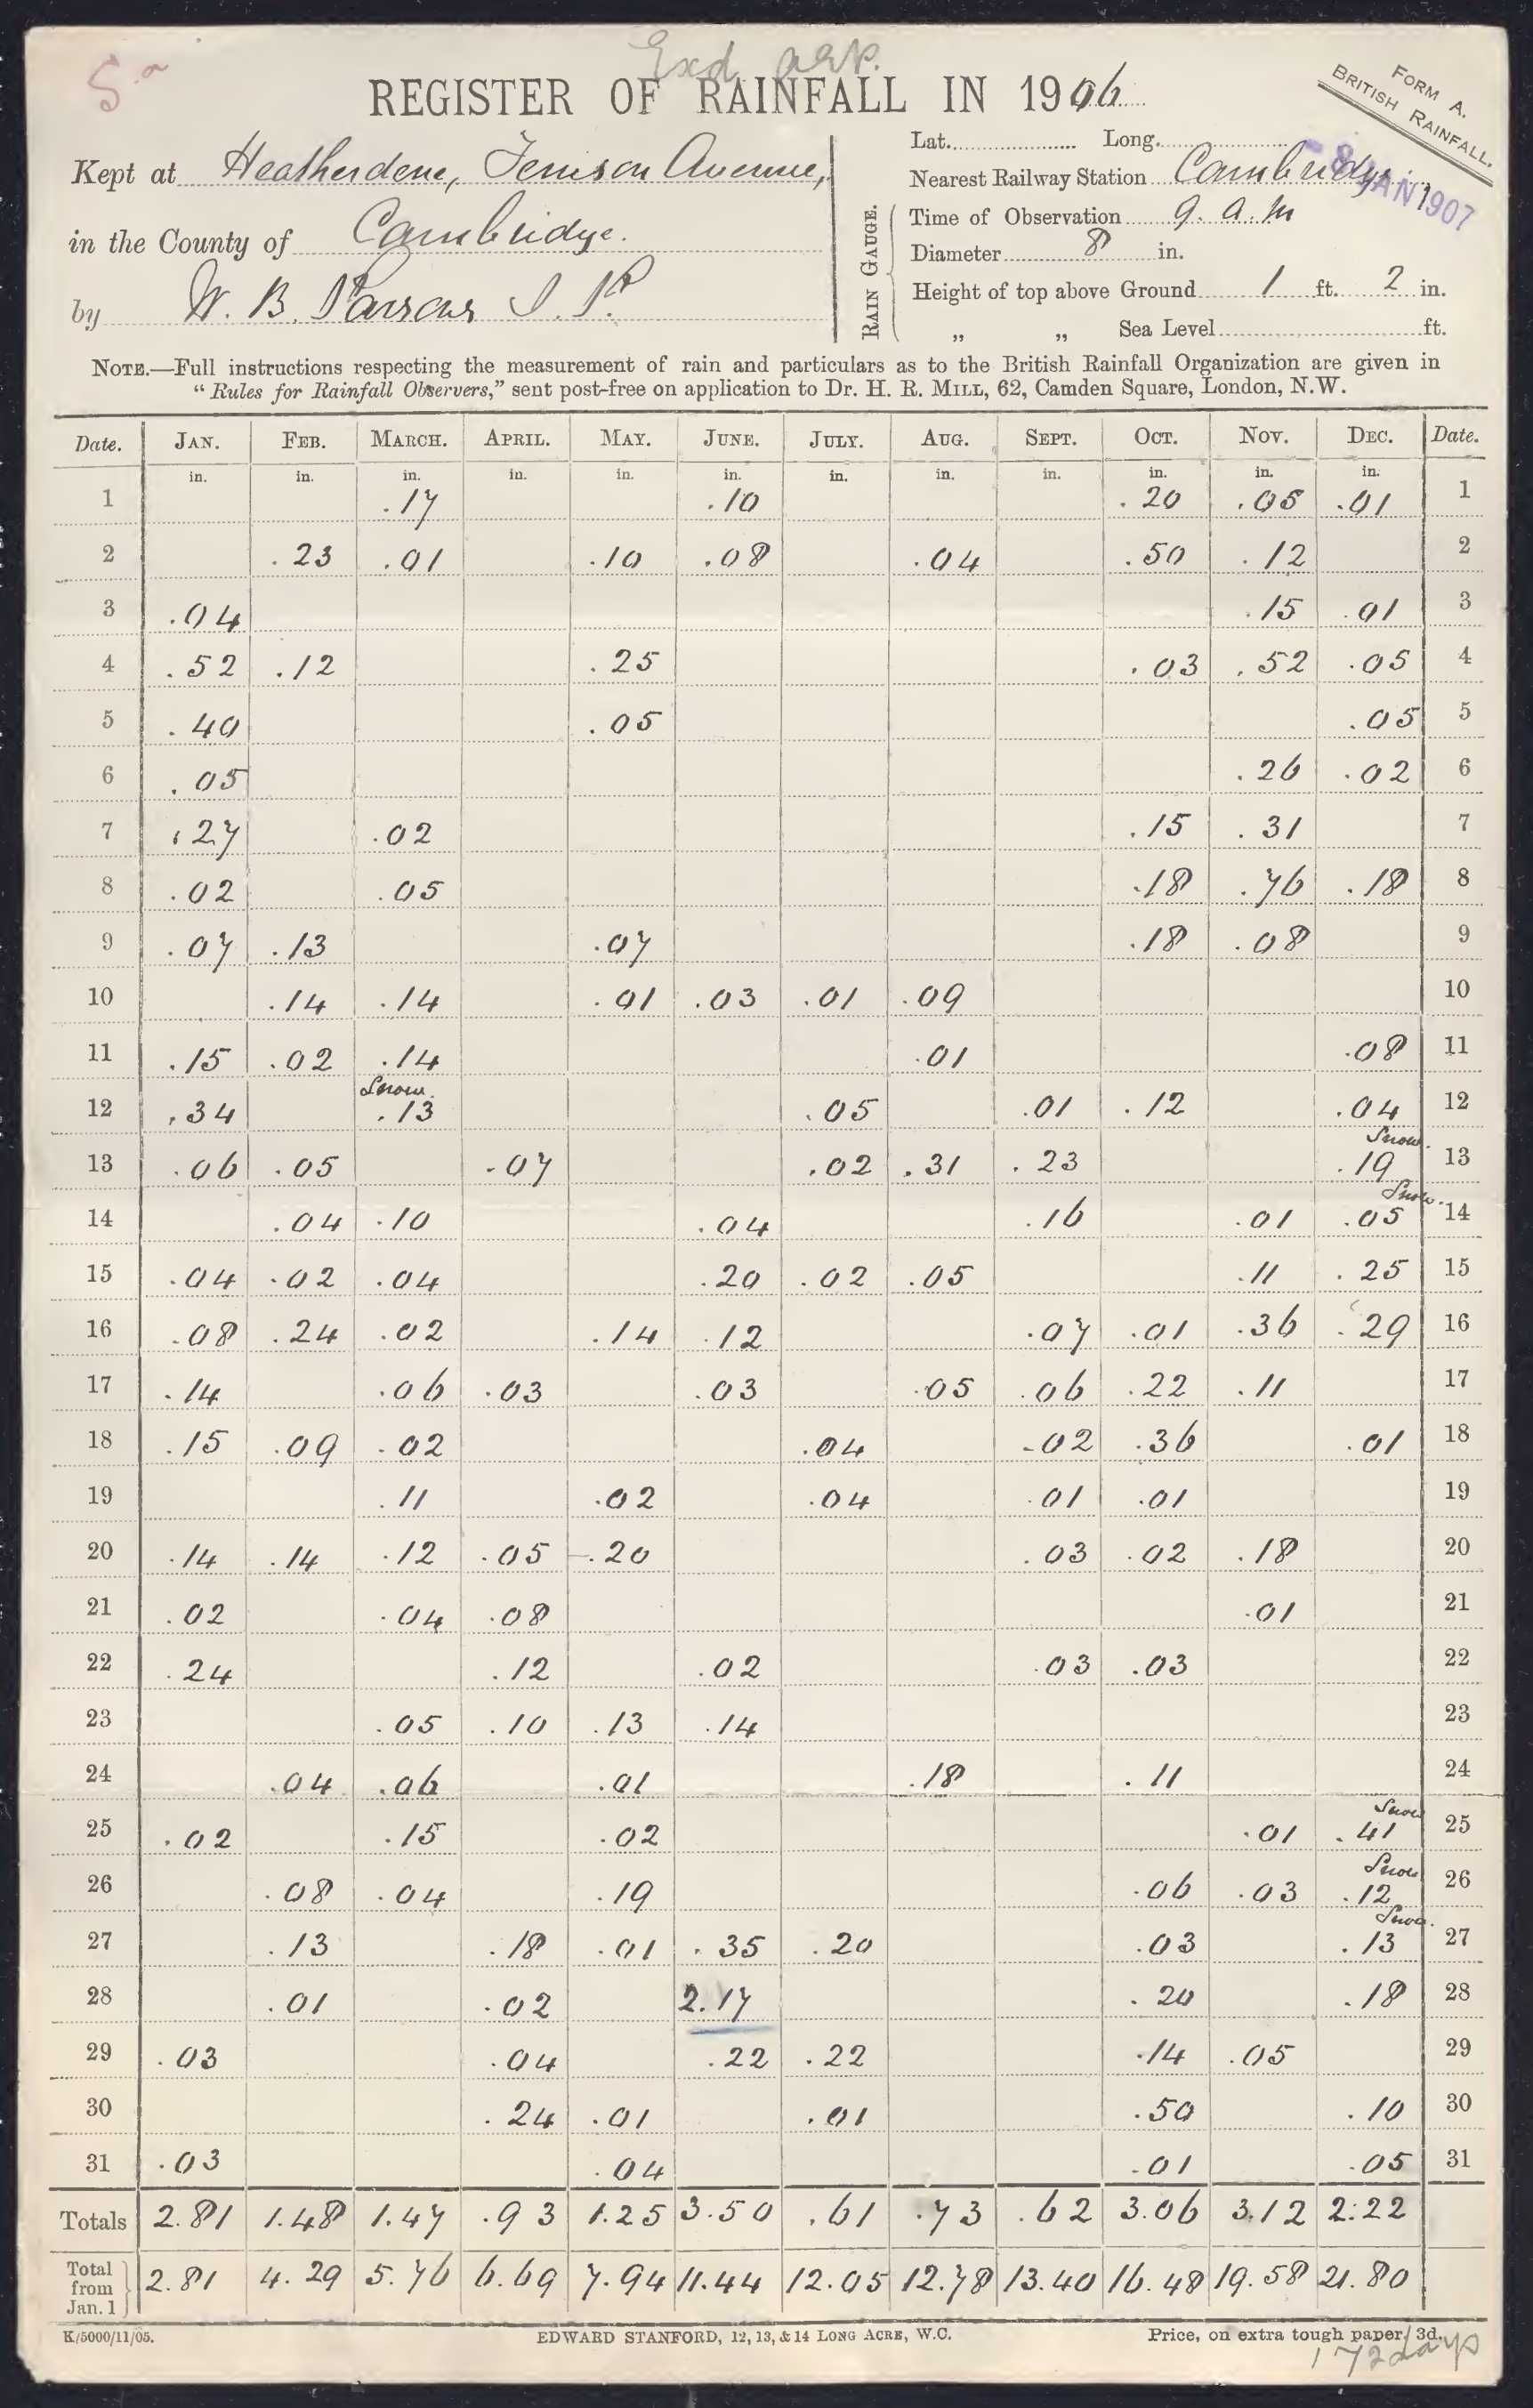 5
Exd
REGISTER OF RAINFALL IN 1906
FORM A.
BRITISH RAINFALL.
Kept at Heatherdene, Tenison Avenue,
in the County of Cambridge.
by W. B. Parsons J. P.
Lat. Long.
Nearest Railway Station Cambridge
-8 JAN 1907
RAIN GAUGE.
Time of Observation 9. a. m
Diameter 8 in.
Height of top above Ground 1 ft. 2 in.
„ „ Sea Level ft.
NOTE.—Full instructions respecting the measurement of rain and particulars as to the British Rainfall Organization are given in
“Rules for Rainfall Observers,” sent post-free on application to Dr. H. R. MILL, 62, Camden Square, London, N.W.
Date. JAN. FEB. MARCH. APRIL. MAY. JUNE. JULY. AUG. SEPT. OCT. NOV. DEC. Date.
in. in. in. in. in. in. in. in. in. in. in. in.
1 .17 .10 .20 .05 .01 1
2 .23 .01 .10 .08 .04 .50 .12 2
3 .04 .15 .01 3
4 .52 .12 .25 .03 .52 .05 4
5 .40 .05 .05 5
6 .05 .26 .02 6
7 .27 .02 .15 .31 7
8 .02 .05 .18 .76 .18 8
9 .07 .13 .07 .18 .08 9
10 .14 .14 .01 .03 .01 .09 10
11 .15 .02 .14 .01 .08 11
12 .34 Snow. .13 .05 .01 .12 .04 12
13 .06 .05 .07 .02 .31 .23 Snow. .19 13
14 .04 .10 .04 .16 .01 Snow. .05 14
15 .04 .02 .04 .20 .02 .05 .11 .25 15
16 .08 .24 .02 .14 .12 .07 .01 .36 .29 16
17 .14 .06 .03 .03 .05 .06 .22 .11 17
18 .15 .09 .02 .04 .02 .36 .01 18
19 .11 .02 .04 .01 .01 19
20 .14 .14 .12 .05 .20 .03 .02 .18 20
21 .02 .04 .08 .01 21
22 .24 .12 .02 .03 .03 22
23 .05 .10 .13 .14 23
24 .04 .06 .01 .18 .11 24
25 .02 .15 .02 .01 Snow .41 25
26 .08 .04 .19 .06 .03 Snow .12 26
27 .13 .18 .01 .35 .20 .03 Snow. .13 27
28 .01 .02 2.17 .20 .18 28
29 .03 .04 .22 .22 .14 .05 29
30 .24 .01 .01 .50 .10 30
31 .03 .04 .01 .05 31
Totals 2.81 1.48 1.47 .93 1.25 3.50 .61 .73 .62 3.06 3.12 2.22
Total from Jan. 1 2.81 4.29 5.76 6.69 7.94 11.44 12.05 12.78 13.40 16.48 19.58 21.80
K/5000/11/05.
EDWARD STANFORD, 12, 13, & 14 LONG ACRE, W.C.
Price, on extra tough paper, 3d.
172 days